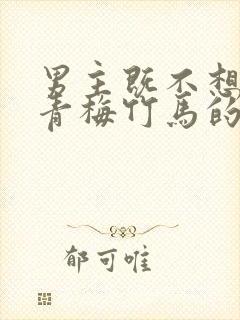 男主既不想
青梅竹马的
郁可唯